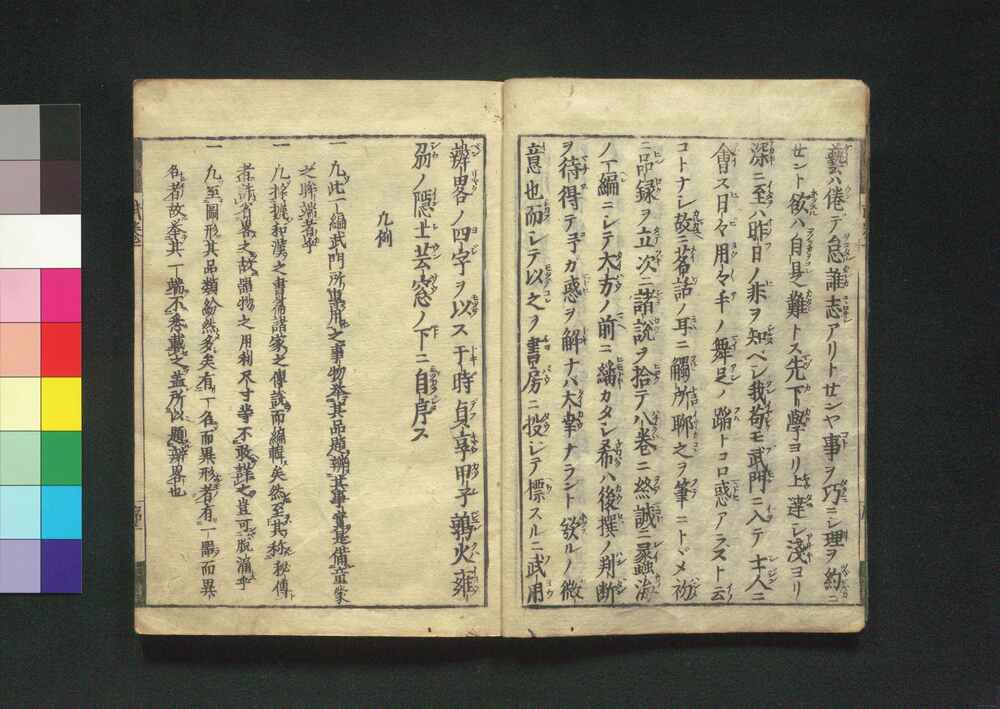 藝ハ倦デ怠誰志アリトセンヤ事ヲ巧ニシ理ヲ約ニ
セント欲ハ自是難トス先下學ヨリ上達シ淺ヨリ
深ニ至ハ昨日ノ非ヲ知ベシ我苟モ武門ニ入テ士人ニ
會ス日々用々手ノ舞足ノ蹈トコロ惑アラスト云
コトナシ故ニ茗話ノ耳ニ觸所聊之ヲ筆ニトヾメ初
ニ品録ヲ立次ニ諸説ヲ拾テ八巻ニ終誠ニ蠡海
ノ一編ニシテ大方ノ前ニ繙カタシ希ハ後撰ノ判断
ヲ待得テ予カ惑ヲ解ナハ大幸ナラント欲ルノ微
意也而シテ以之ヲ書房ニ投シテ標スルニ武用
辨畧ノ四字ヲ以ス于時貞享甲子鶉火雍
刕ノ隠士芸窓ノ下ニ自序ス
凡例
一 凡此一編武門所專用之事物挙其品題辨其事實是備童蒙
之睇端者乎
一 凡採摭和漢之書傍諸家之傳説而編輯矣然至其称秘傳
者謙省畧之故器物之用利尺寸等不敢詳之豈可脱漏乎
一 凡至圖形其品類紛然多矣有一名而異形者有一圖而異
名者故挙其一端不悉載之蓋所以題辨畧也